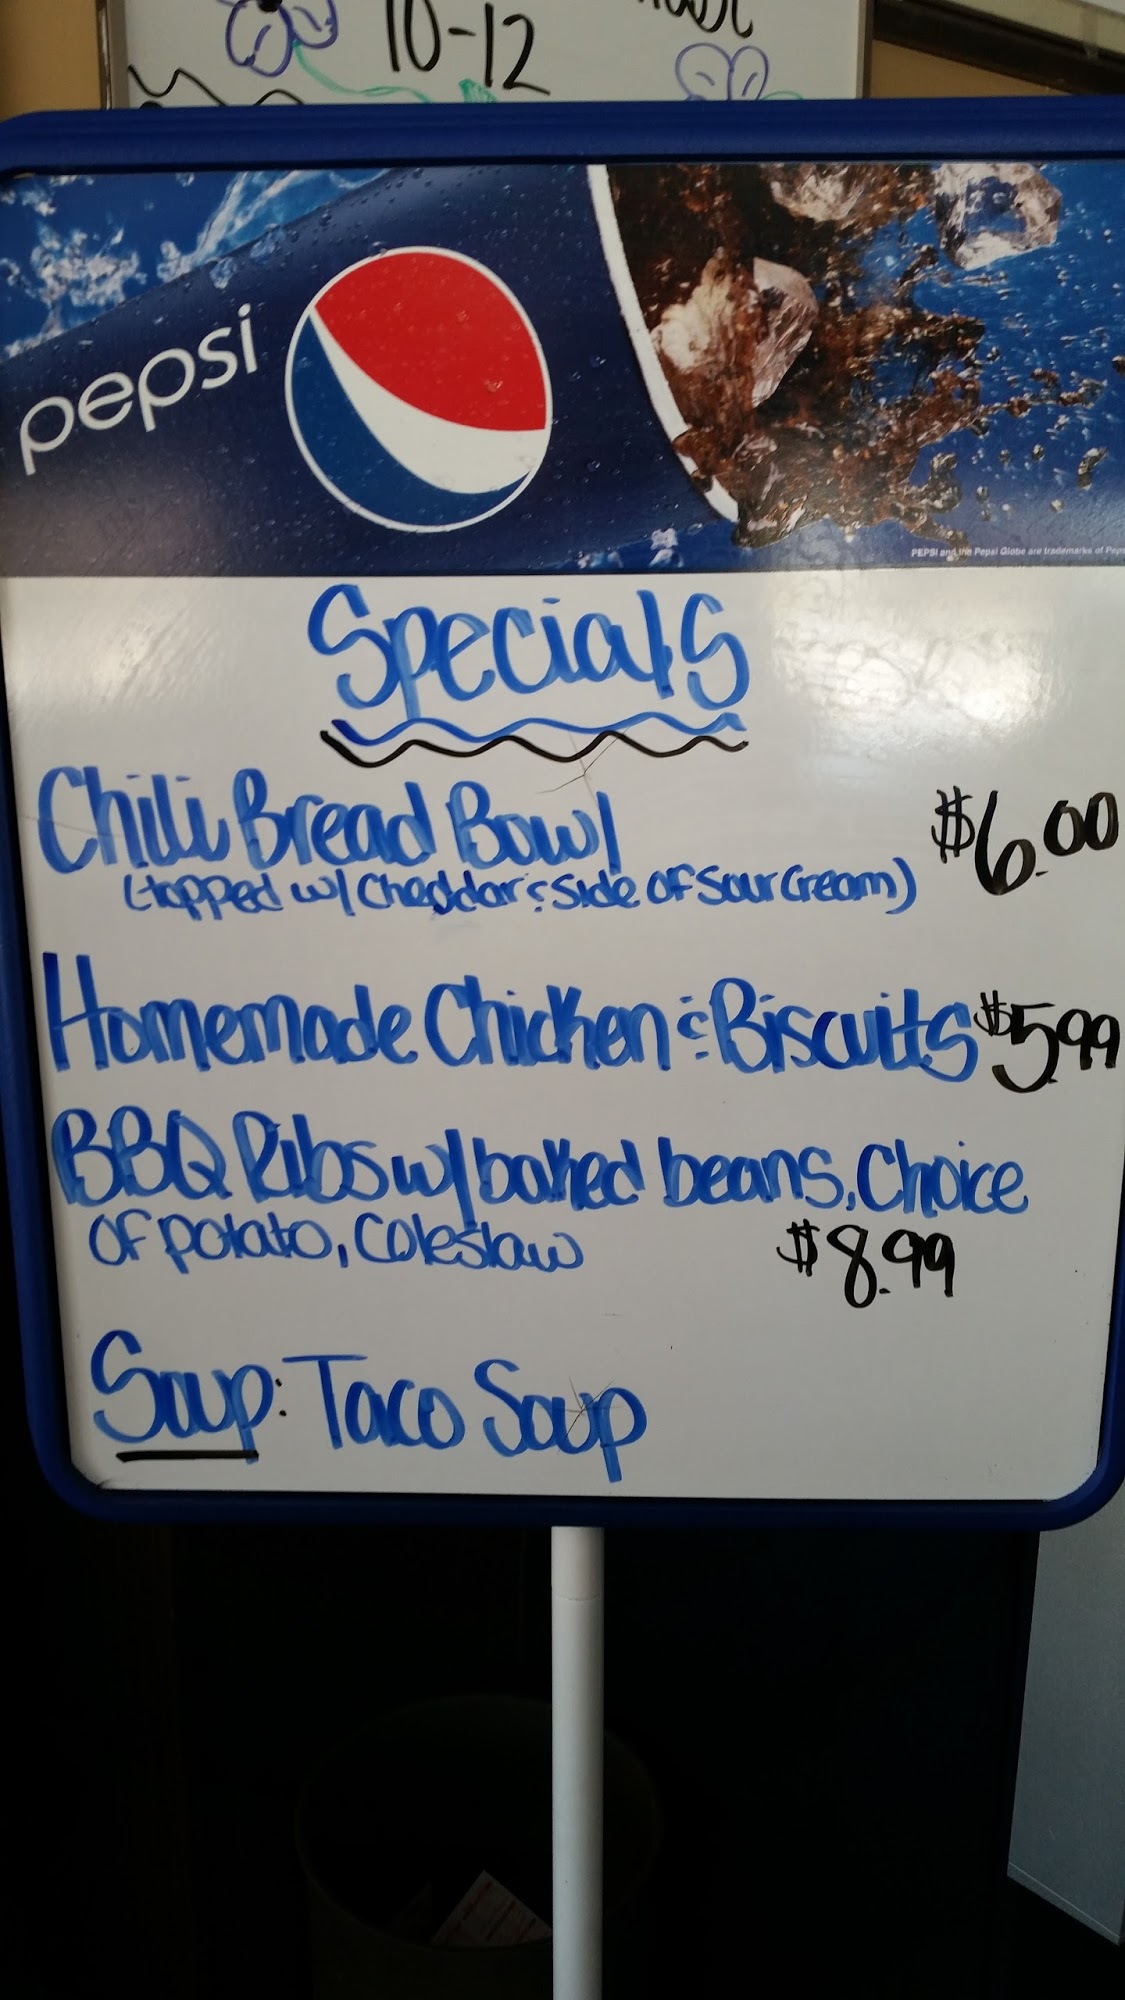 10-12
pepsi
PEPSI and the Pepsi Globe are trademarks of
Specials
Chili Bread Bowl $6.00
(topped w/ Cheddar & Side of Sour Cream)
Homemade Chicken & Biscuits $5.99
BBQ Ribs w/ baked beans, Choice
of potato, Coleslaw $8.99
Soup: Taco Soup